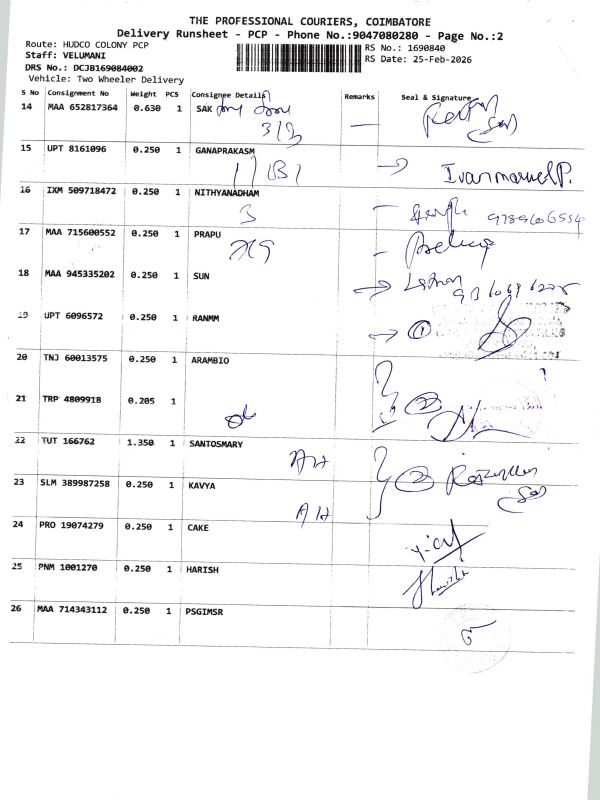 THE PROFESSIONAL COURIERS, COIMBATORE
Delivery Runsheet - PCP - Phone No.:9047080280 - Page No.:2
Route: HUDCO COLONY PCP
RS No.: 1690840
Staff: VELUMANI
RS Date: 25-Feb-2026
DRS No.: DCJB169084002
Vehicle: Two Wheeler Delivery
S No Consignment No Weight PCS Consignee Details Remarks Seal & Signature
14 MAA 652817364 0.630 1 SAK
15 UPT 8161096 0.250 1 GANAPRAKASM
16 IXM 509718472 0.250 1 NITHYANADHAM
3
17 MAA 715600552 0.250 1 PRAPU
18 MAA 945335202 0.250 1 SUN
19 UPT 6096572 0.250 1 RANMM
1
20 TNJ 60013575 0.250 1 ARAMBIO
21 TRP 4809918 0.205 1
2
22 TUT 166762 1.350 1 SANTOSMARY
2
23 SLM 389987258 0.250 1 KAVYA
24 PRO 19074279 0.250 1 CAKE
25 PNM 1001270 0.250 1 HARISH
26 MAA 714343112 0.250 1 PSGIMSR